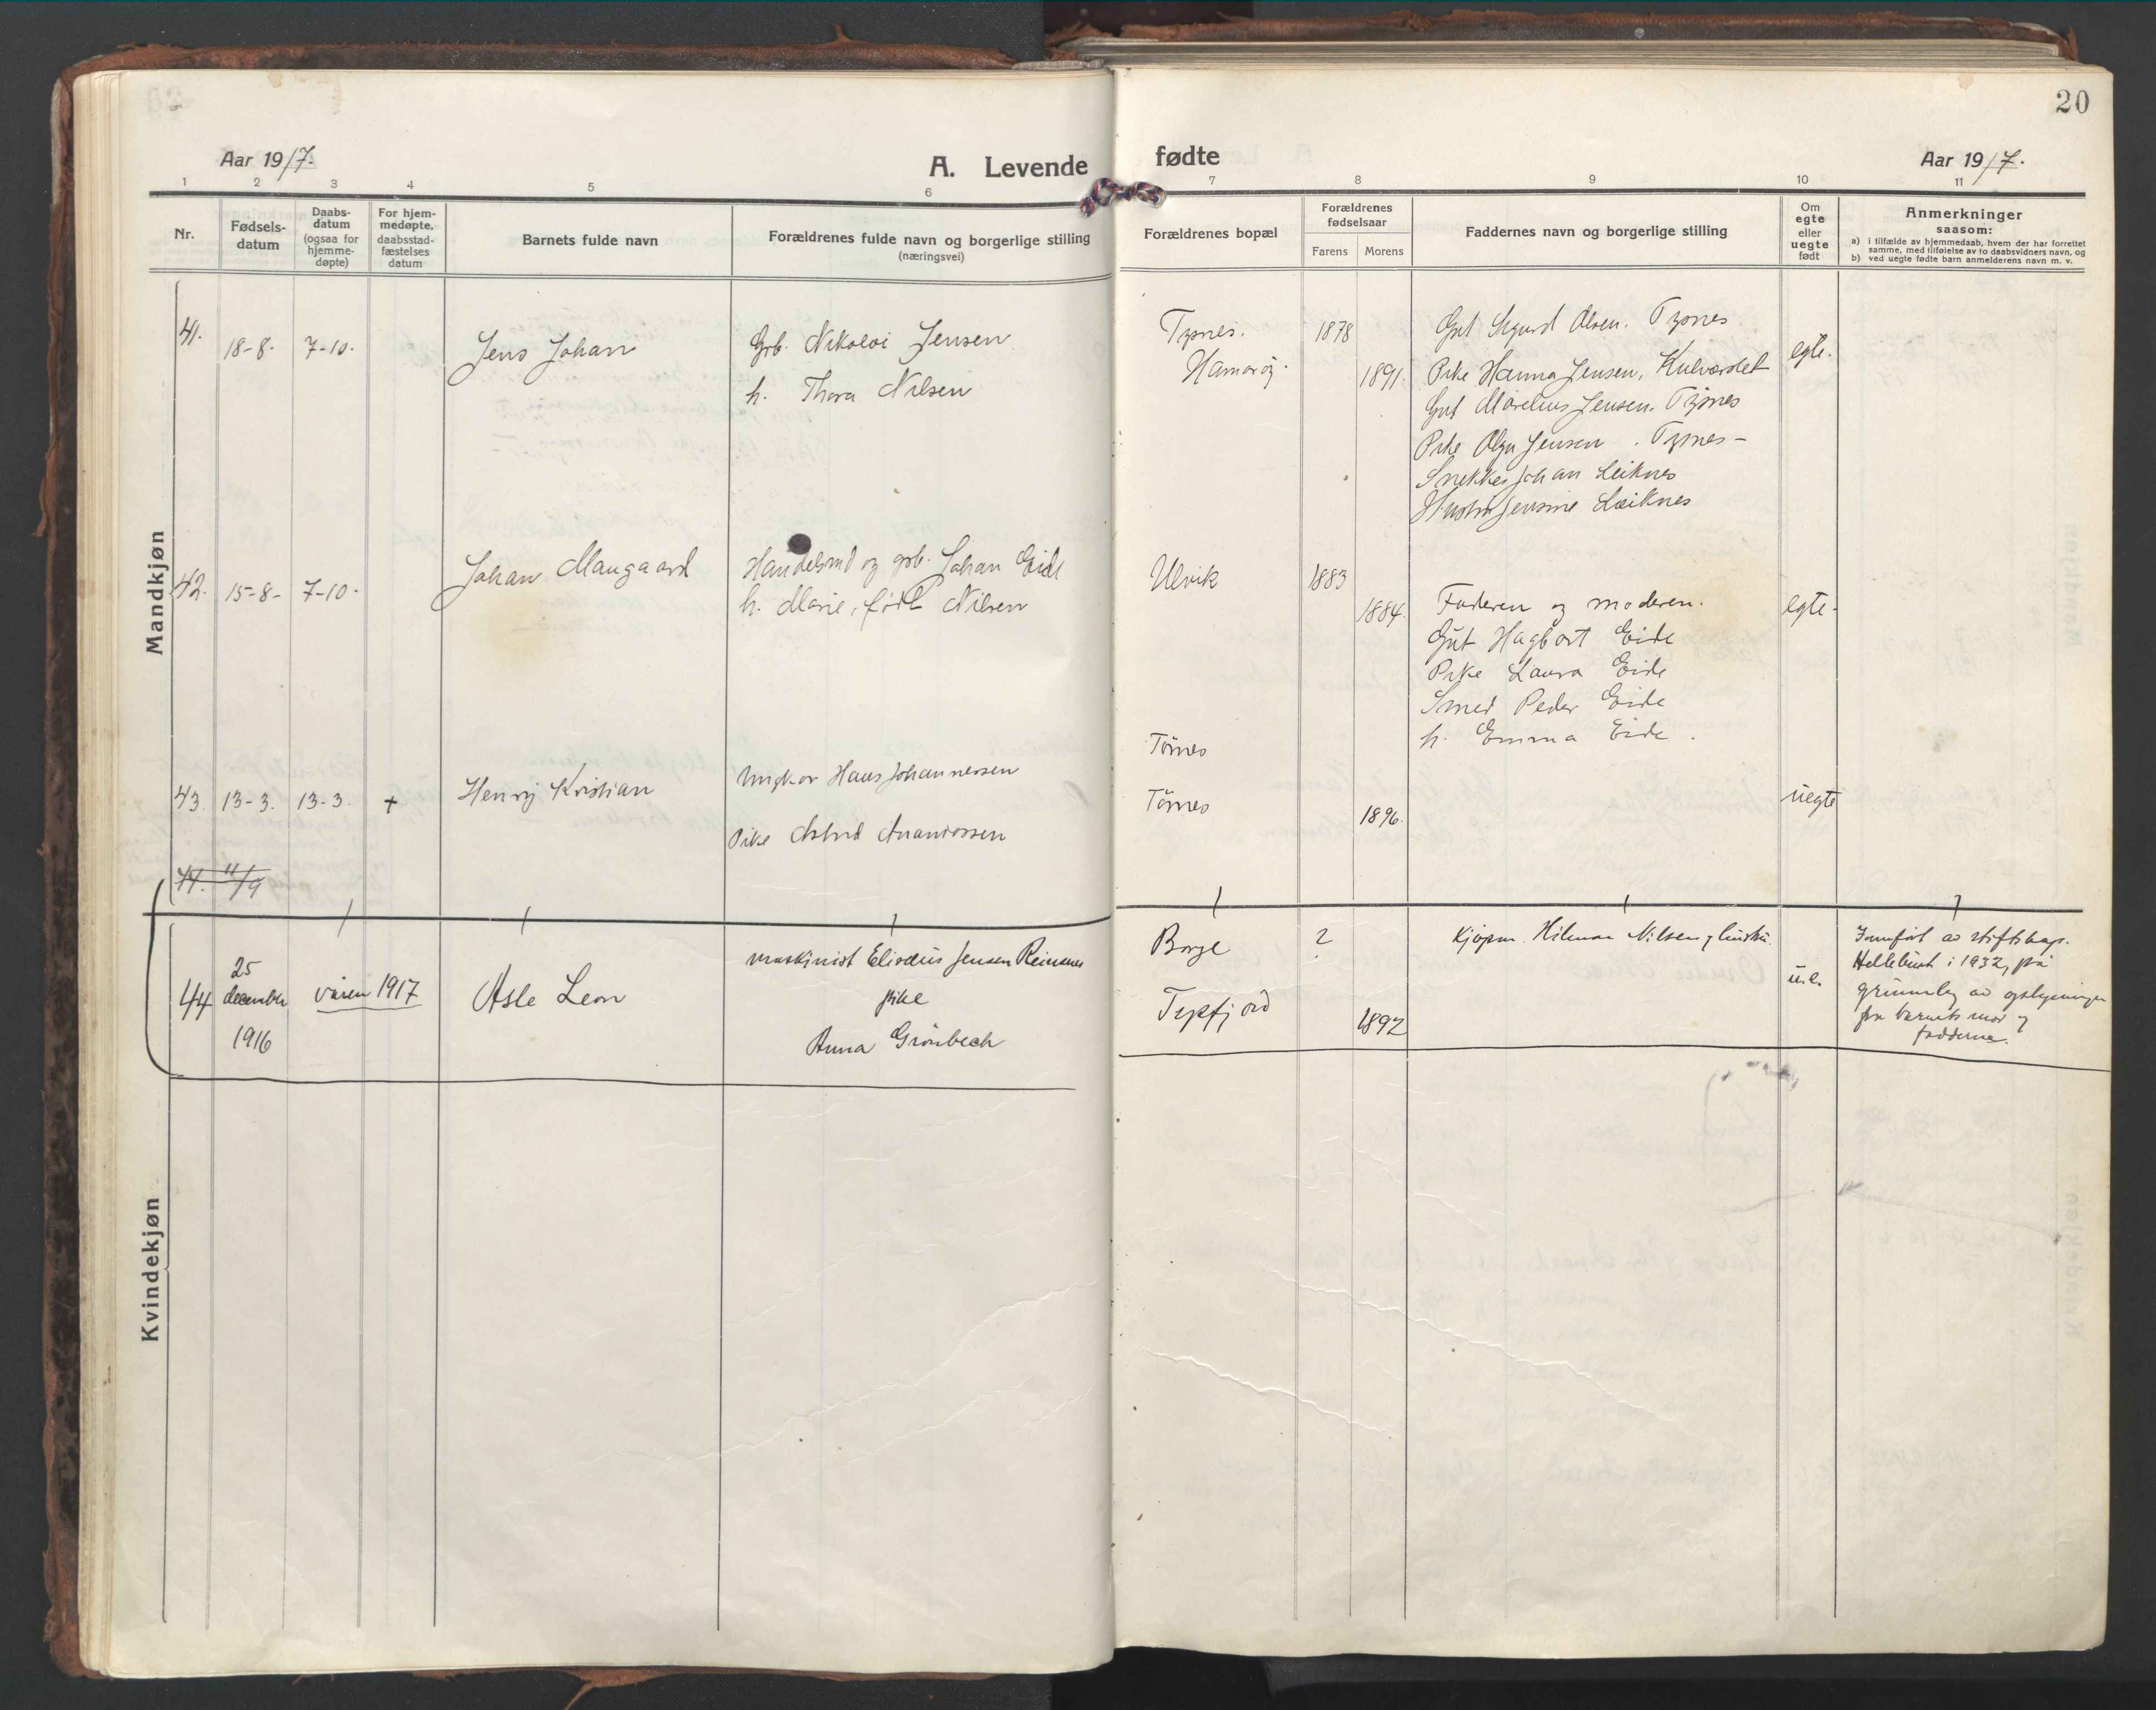 20
Aar 1917.
A. Levende fødte
Aar 1917.
1 2 3 4 5 6 7 8 9 10 11
Nr.
Fødsels-
datum
Daabs-
datum
(ogsaa for
hjemme-
døpte)
For hjem-
medøpte,
daabsstad-
fæstelses
datum
Barnets fulde navn
Forældrenes fulde navn og borgerlige stilling
(næringsvei)
Forældrenes bopæl
Forældrenes
fødselsaar
Farens Morens
Faddernes navn og borgerlige stilling
Om
egte
eller
uegte
født
Anmerkninger
saasom:
a) i tilfælde av hjemmedaab, hvem der har forrettet
samme, med tilføielse av to daabsvidners navn, og
b) ved uegte fødte barn anmelderens navn m. v.
Mandkjøn
41. 18-8. 7-10. Jens Johan
Grb. Nikolai Jensen
h. Thora Nilsen
Tysnes.
Hamarøy.
1878
1891.
Gut Sigurd Olsen. Tysnes
Pike Hanna Jensen,
Gut Marelius Jensen. Tysnes
Pike Olga Jensen. Tysnes-
Snekker Johan Leiknes
Hustru Jensine Leiknes
egte.
42. 15-8- 7-10. Johan Maugaard
Handelsmd og grb. Johan Eide
h. Marie, født Nilsen
Ulvik
1883
1884.
Faderen og moderen.
Gut Hagbart Eide
Pike Laura Eide
Smed Peder Eide
h. Emma Eide.
egte-
43. 13-3. 13-3. + Henrij Kristian
Ungkar Hans Johannessen
Pike Astrid Ananiassen
Tömes
Tömes
1896.
uegte
44. 11/9
44 25
december
1916
våren 1917
Asle Leon
maskinist Elisæus Jensen Reinsnes
pike
Anna Grönbech
Borge
Tepfjord
?
1892
Kjöpm. Hilmar Nilsen og hustru.
u.e.
Innfört av stiftskap.
Hellebust i 1932, på
grunnlag av oplysninger
fra barnets mor og
fadderne.
Kvindekjøn